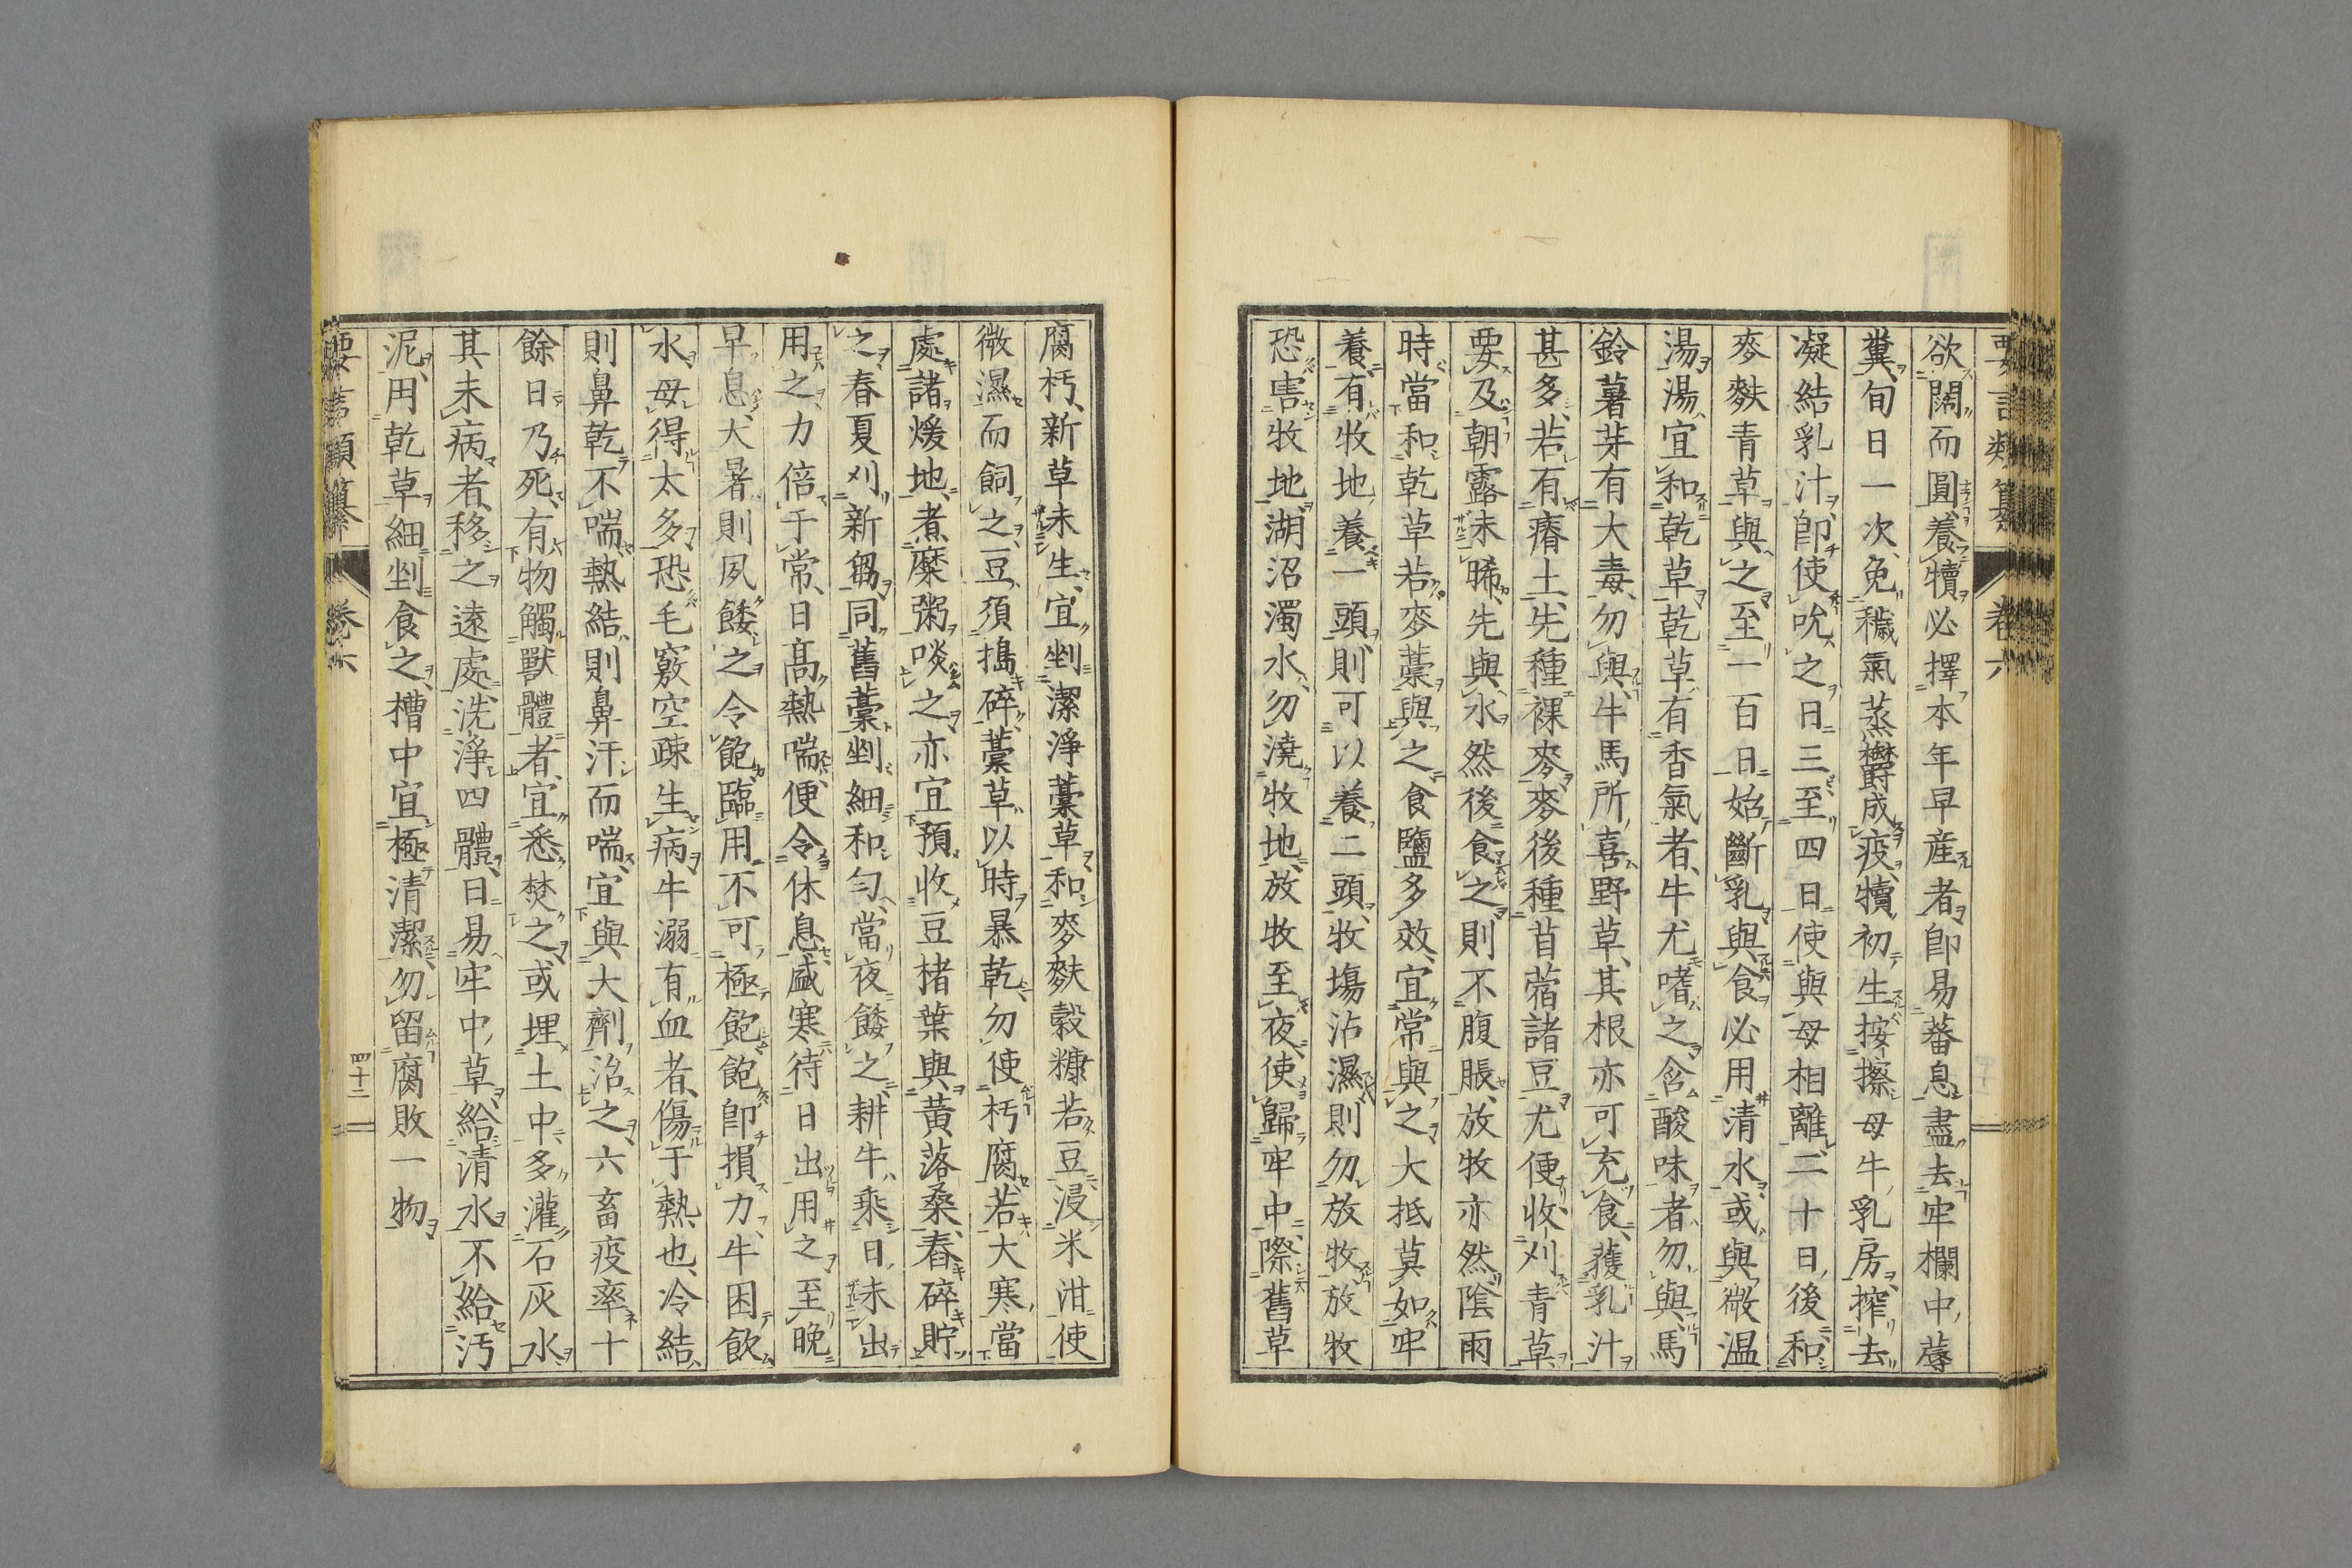 要言類纂 卷六
欲闊而圓、養犢必擇本年早産者、卽易蕃息、盡去牢欄中蓐
糞、旬日一次、免穢氣蒸欝成疫、犢初生按擦母牛乳房、搾去
凝結乳汁、卽使吮之、日三、至四日使與母相離、二十日後和
麥麩青草與之、至一百日始斷乳與食、必用清水、或與微温
湯、湯宜和乾草、乾草有香氣者、牛尤嗜之、含酸味者勿與、馬
鈴薯芽有大毒、勿與、牛馬所喜野草、其根亦可充食、獲乳汁
甚多、若有瘠土、先種裸麥、麥後種苜蓿諸豆尤便、收刈青草
要及朝露未晞、先與水然後食之、則不腹脹、放牧亦然、陰雨
時當和乾草若麥藁與之、食鹽多效、宜常與之、大抵莫如牢
養、有牧地養一頭、則可以養二頭、牧塲沾濕則勿放牧、放牧
恐害牧地、湖沼濁水、勿澆牧地、放牧至夜、使歸牢中、際舊草
腐朽、新草未生、宜剉潔淨藁草和麥麩榖糠若豆、浸米泔使
微濕而飼之、豆須搗碎、藁草以時暴乾、勿使朽腐、若大寒、當
處諸煖地、煮糜粥啖之、亦宜預收豆楮葉與黄落桑、舂碎貯
之、春夏刈新芻、同舊藁剉細和匀、當夜餧之、耕牛乘日未出
用之、力倍于常、日高熱喘、便令休息、盛寒待日出用之、至晚
早息、大暑則夙餧之、令飽臨用、不可極飽、飽卽損力、牛困飲
水、毋得太多、恐毛竅空疎生病、牛溺有血者、傷于熱也、冷結
則鼻乾不喘、熱結則鼻汗而喘、宜與大劑治之、六畜疫率十
餘日乃死、有物觸獸體者、宜悉焚之、或埋土中、多灌石灰水、
其未病者、移之遠處、洗淨四體、日易牢中草、給清水、不給汚
泥、用乾草細剉食之、槽中宜極清潔、勿留腐敗一物
要言類纂 卷六 四十二